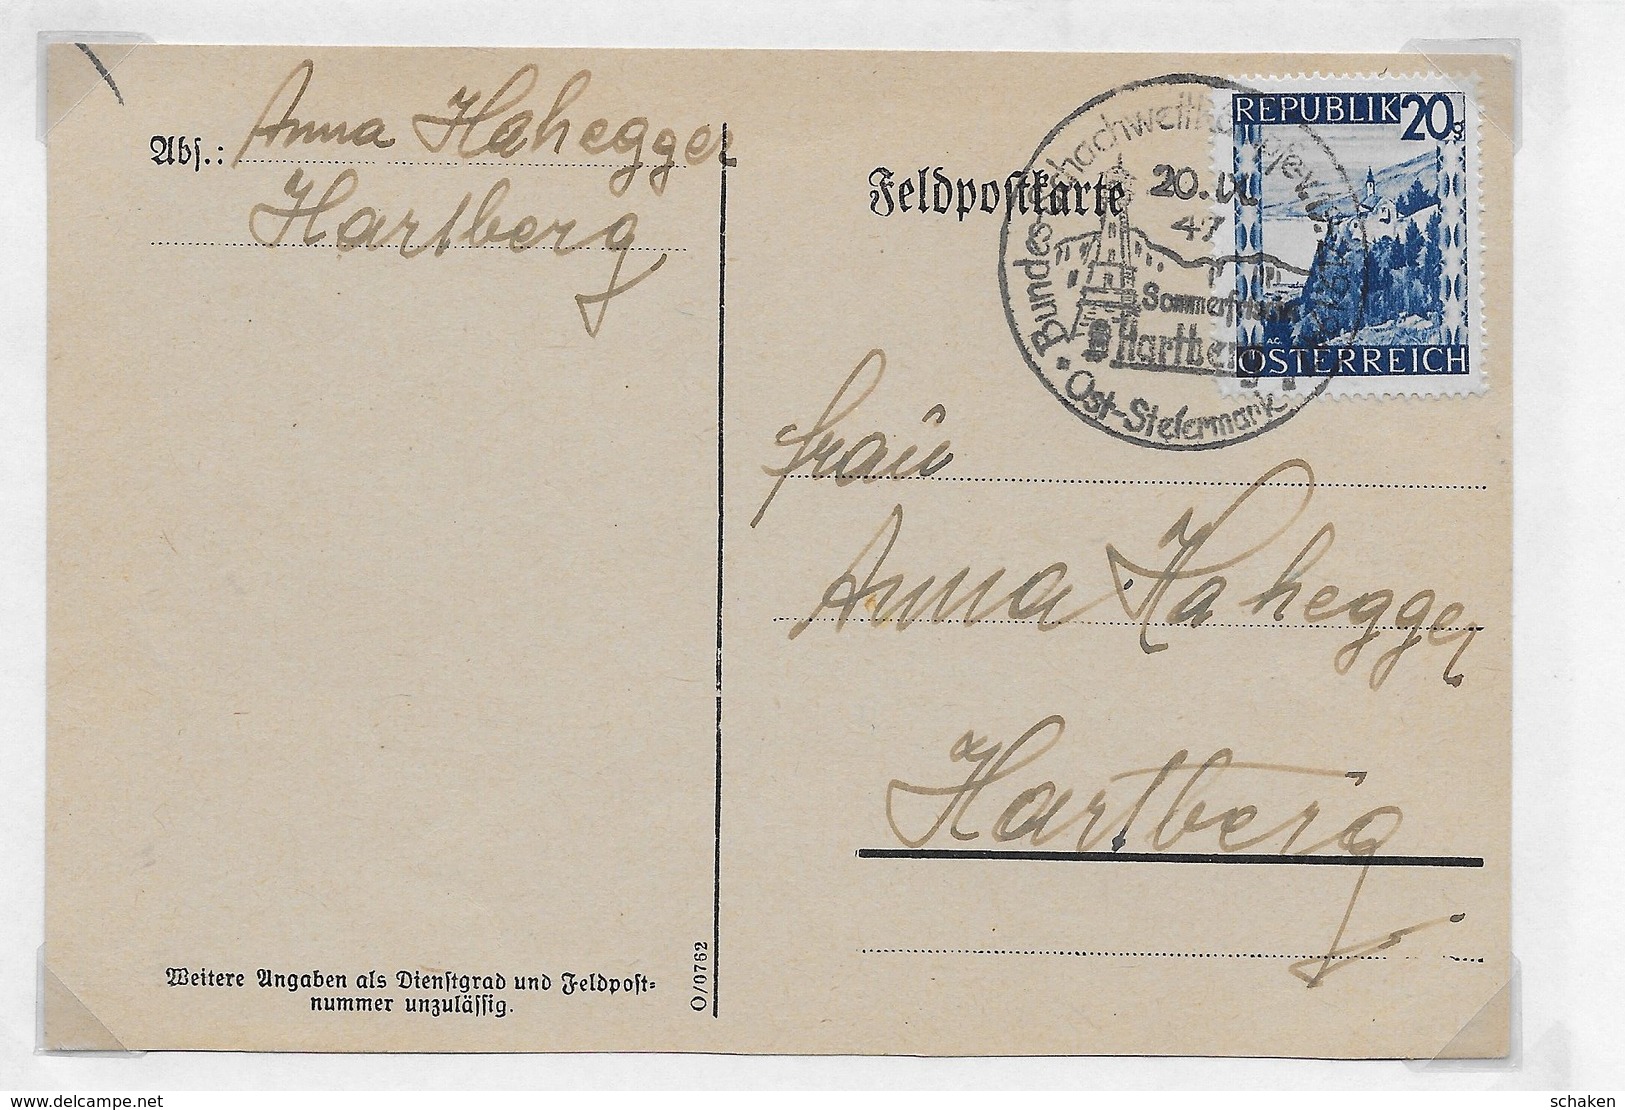 Abs.: Anna Hahegger
Hartberg
Feldpostkarte
REPUBLIK 20g
ÖSTERREICH
20. IX.
47
Sommerfrische
Hartberg
Ost-Steiermark
Frau
Anna Hahegger
Hartberg
Weitere Angaben als Dienstgrad und Feldpost=
nummer unzulässig.
O/0762
www.delcampe.net
schaken